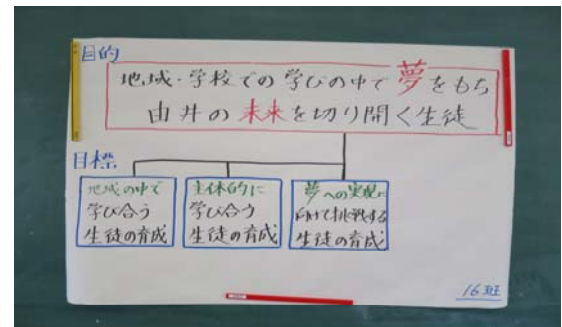 目的
地域・学校での学びの中で夢をもち
由井の未来を切り開く生徒
目標
地域の中で
学び合う
生徒の育成
主体的に
学び合う
生徒の育成
夢への実現に
向けて挑戦する
生徒の育成
16班